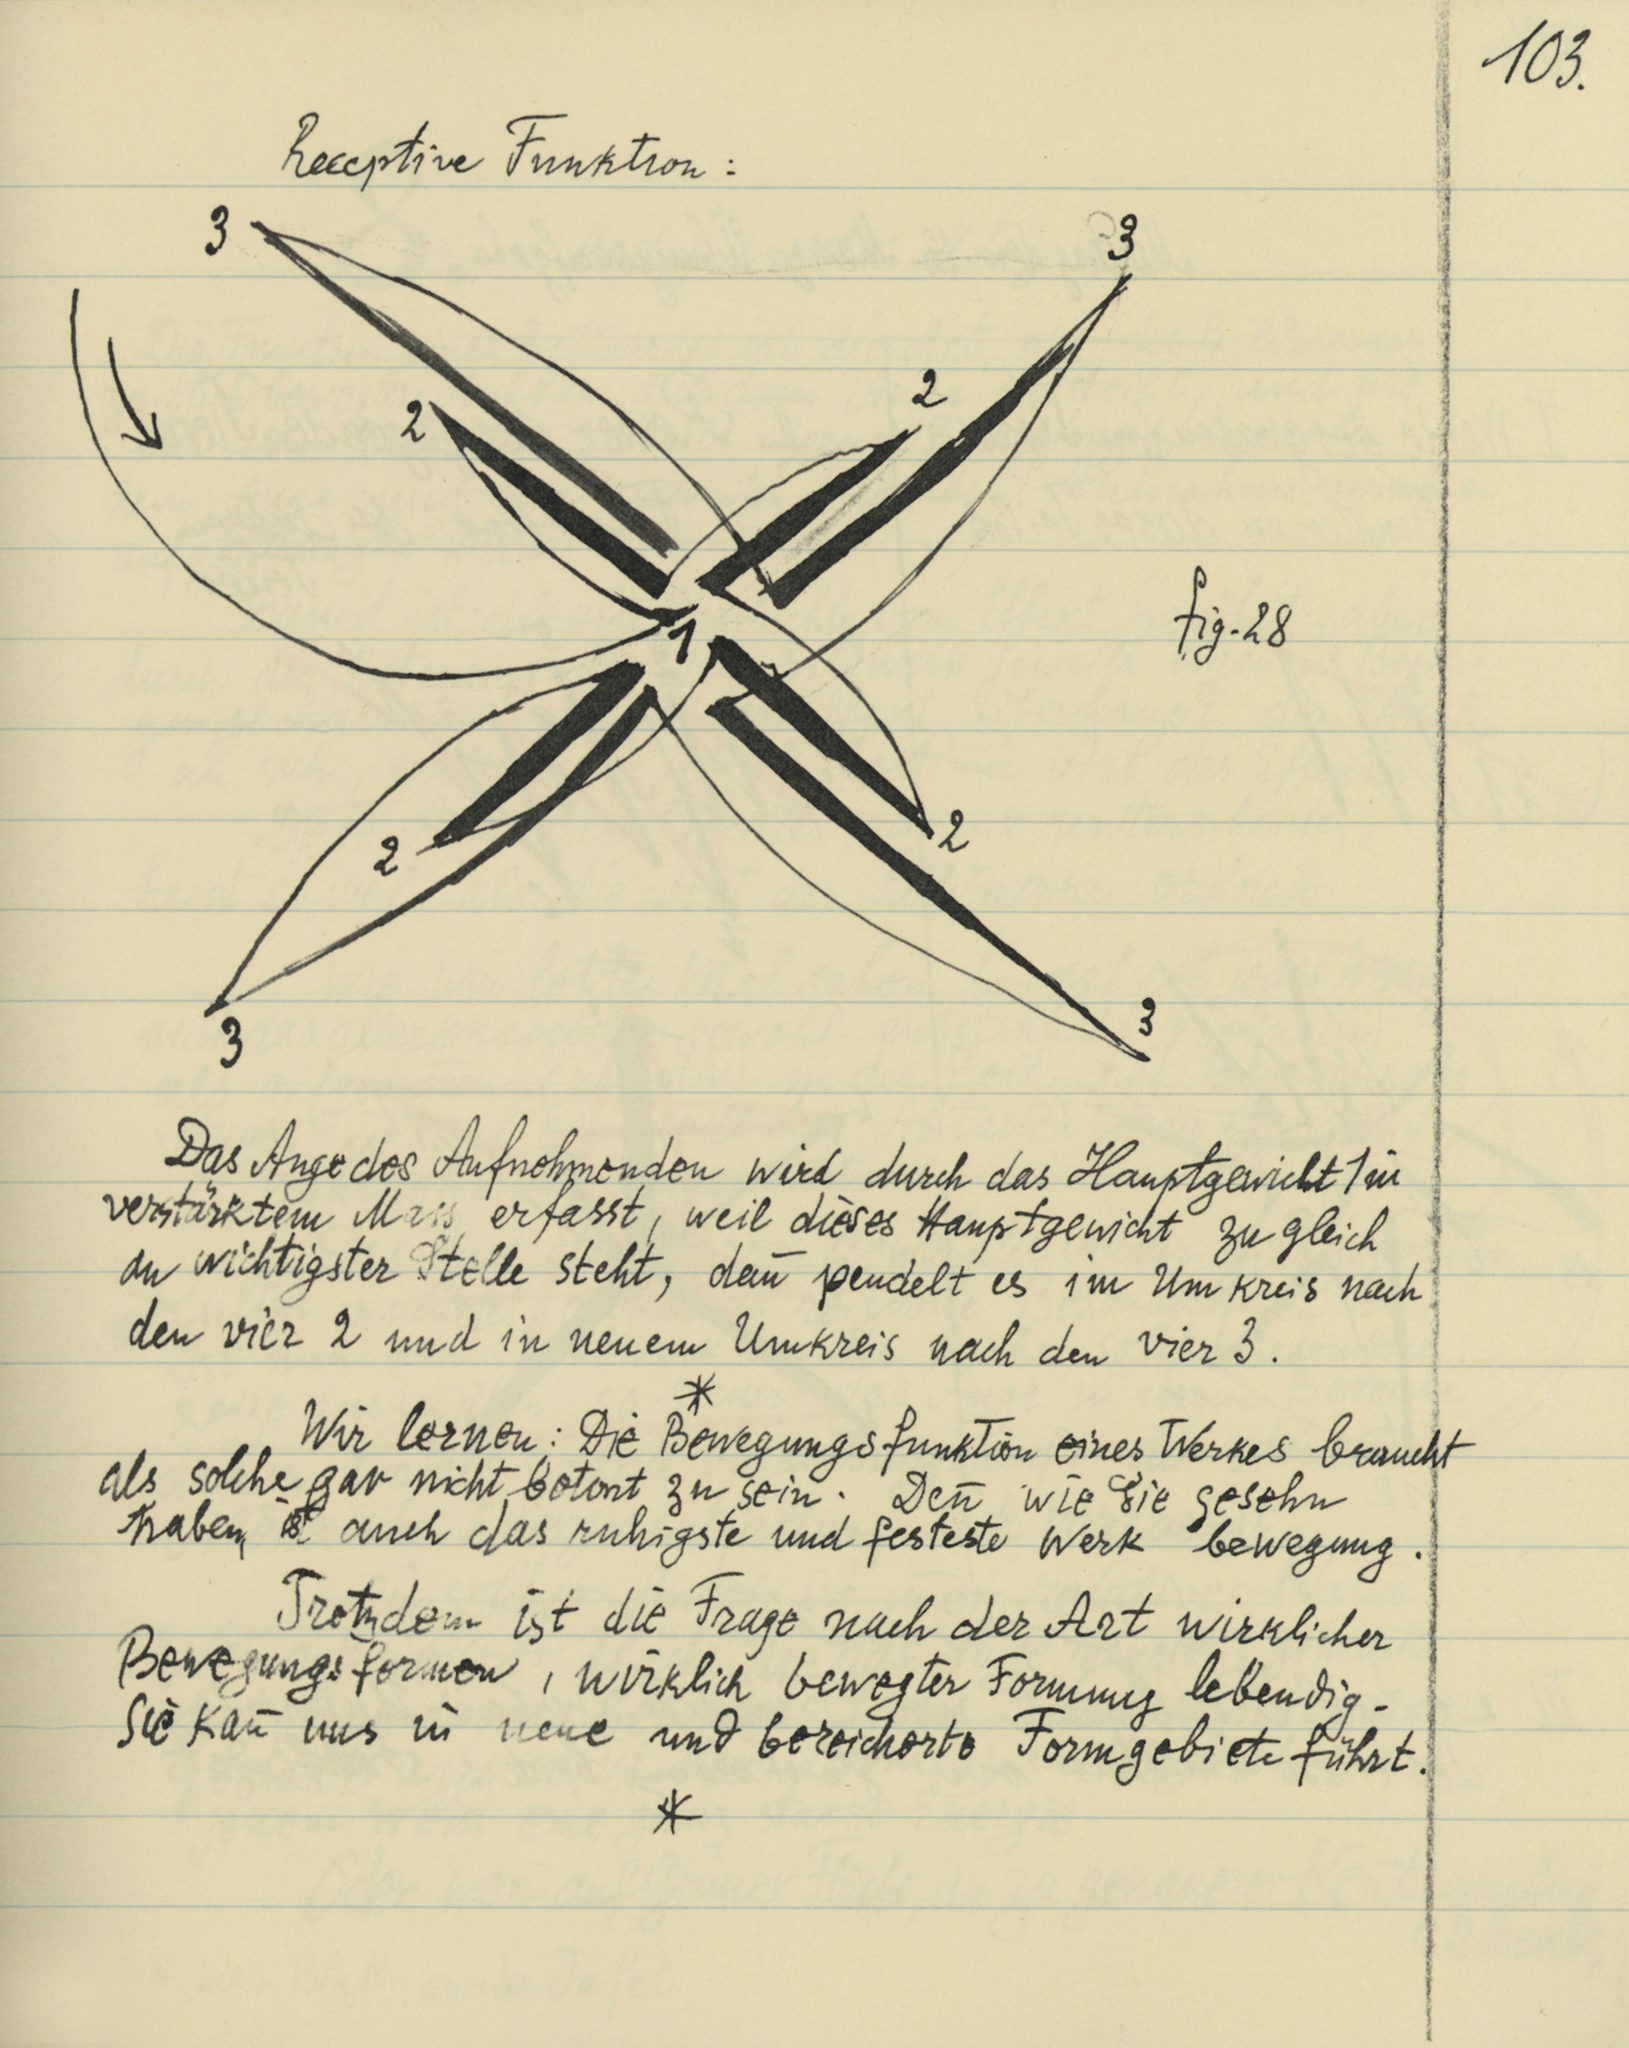 103.
Receptive Funktion:
3
3
2
2
fig. 28
1
2
2
3
3
Das Auge des Aufnehmenden wird durch das Hauptgewicht 1 in
verstärktem Mass erfasst, weil dieses Hauptgewicht zugleich
an wichtigster Stelle steht, dan̄ pendelt es im Umkreis nach
den vier 2 und in neuem Umkreis nach den vier 3.
*
Wir lernen: Die Bewegungsfunktion eines Werkes braucht
als solche gar nicht betont zu sein. Den̄ wie Sie gesehn
haben, ist auch das ruhigste und festeste Werk bewegung.
Trotzdem ist die Frage nach der Art wirklicher
Bewegungsformen, wirklich bewegter Formung lebendig.
Sie kan̄ uns in neue und bereicherte Formgebiete führt.
*